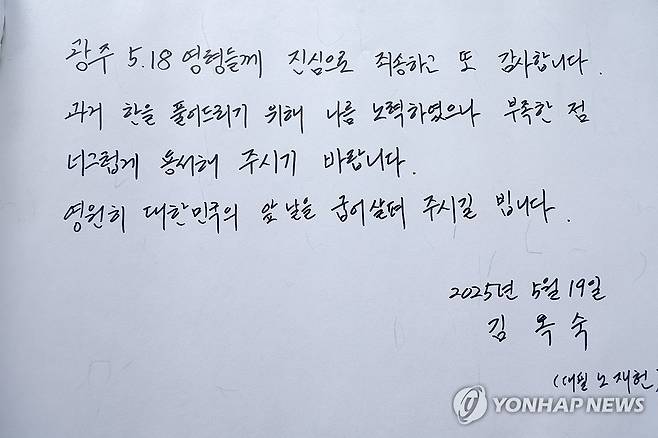 광주 5.18 영령들께 진심으로 죄송하고 또 감사합니다.
과거 한을 풀어드리기 위해 나름 노력하였으나 부족한 점
너그럽게 용서해 주시기 바랍니다.
영원히 대한민국의 앞날을 굽어살펴 주시길 빕니다.
2025년 5월 19일
김옥숙
(대필 노재헌)
YONHAP NEWS